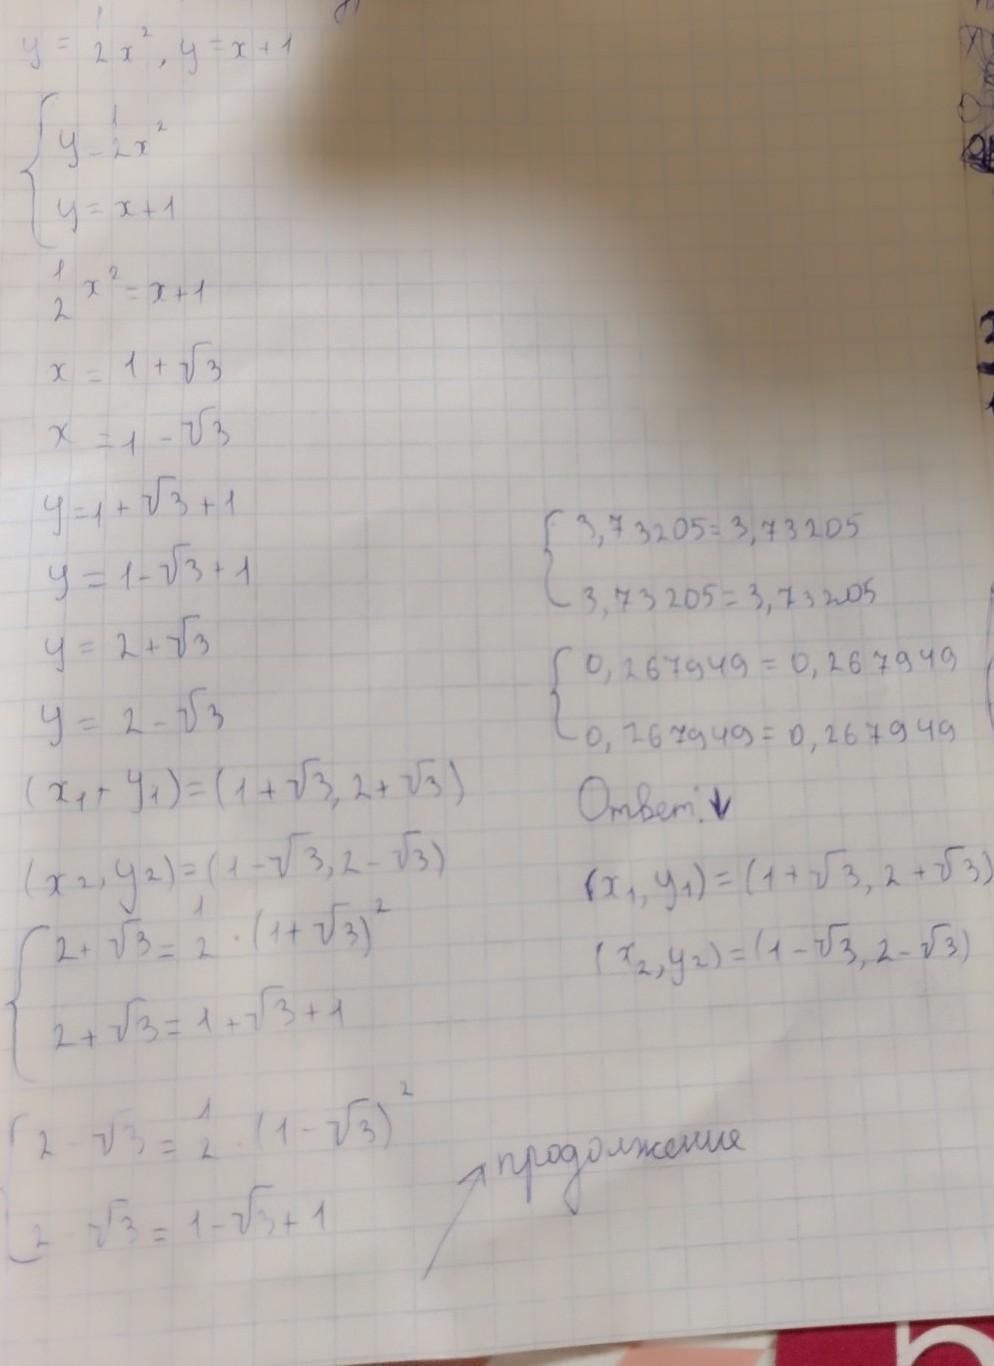 y = 1/2 x², y = x + 1
{ y - 1/2 x²
y = x + 1
1/2 x² = x + 1
x = 1 + √3
x = 1 - √3
y = 1 + √3 + 1
y = 1 - √3 + 1
y = 2 + √3
y = 2 - √3
(x₁ + y₁) = (1 + √3, 2 + √3)
(x₂, y₂) = (1 - √3, 2 - √3)
{ 2 + √3 = 1/2 · (1 + √3)²
2 + √3 = 1 + √3 + 1
{ 2 - √3 = 1/2 · (1 - √3)²
2 - √3 = 1 - √3 + 1
продолжение
{ 3,73205 = 3,73205
3,73205 = 3,73205
{ 0,267949 = 0,267949
0,267949 = 0,267949
Ответ: ↓
(x₁, y₁) = (1 + √3, 2 + √3)
(x₂, y₂) = (1 - √3, 2 - √3)